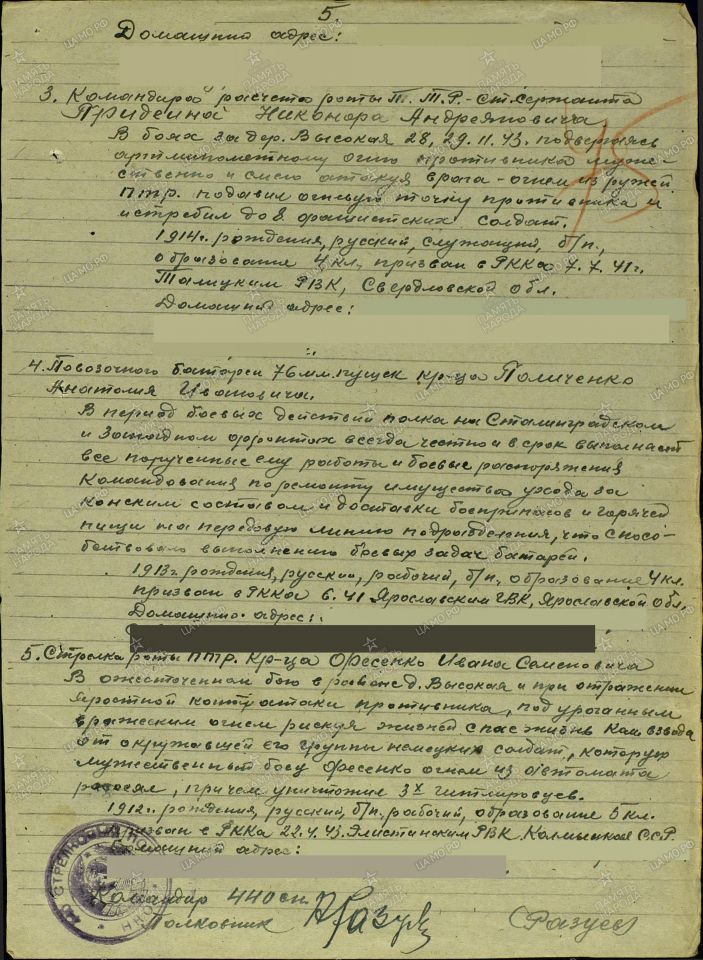 5.
Домашний адрес:
3. Командира расчета роты П.Т.Р. - ст. сержанта
Придеина Никонора Андреяновича
В боях за дер. Высокая 28, 29.11.43. подвергаясь
артминометному огню противника муже-
ственно и смело атакуя врага - огнем из ружей
ПТР. подавил огневую точку противника и
истребил до 8 фашистских солдат.
1914г. рождения, русский, служащий, б/п.,
образование 4 кл., призван в РККА 7.7.41г.
Талицким РВК, Свердловской обл.
Домашний адрес:
4. Повозочного батареи 76 мм. пушек кр-ца Паличенко
Анатолия Ивановича.
В период боевых действий полка на Сталинградском
и Западном фронтах всегда честно и в срок выполняет
все порученные ему работы и боевые распоряжения
командования по ремонту имущества ухода за
конским составом и доставки боеприпасов и горячей
пищи на передовую линию подразделения, что способ-
бствовало выполнению боевых задач батареи.
1913г. рождения, русский, рабочий, б/п, образование 4 кл.
призван в РККА 6.41 Ярославским ГВК, Ярославской обл.
Домашний адрес:
5. Стрелка роты ПТР. кр-ца Фесенко Ивана Семеновича
В ожесточенном бою в районе д. Высокая и при отражении
яростной контратаки противника, под ураганным
вражеским огнем рискуя жизней спас жизнь ком. взвода
от окружавшей его группы немецких солдат, которую
мужественный боец Фесенко огнем из автомата
рассеял, причем уничтожил 3х гитлеровцев.
1912г. рождения, русский, б/п. рабочий, образование 5 кл.
призван в РККА 22.4.43. Элистинским РВК. Калмыцкая ССР
Домашний адрес:
Командир 440 сп.
Полковник
(Разуев)